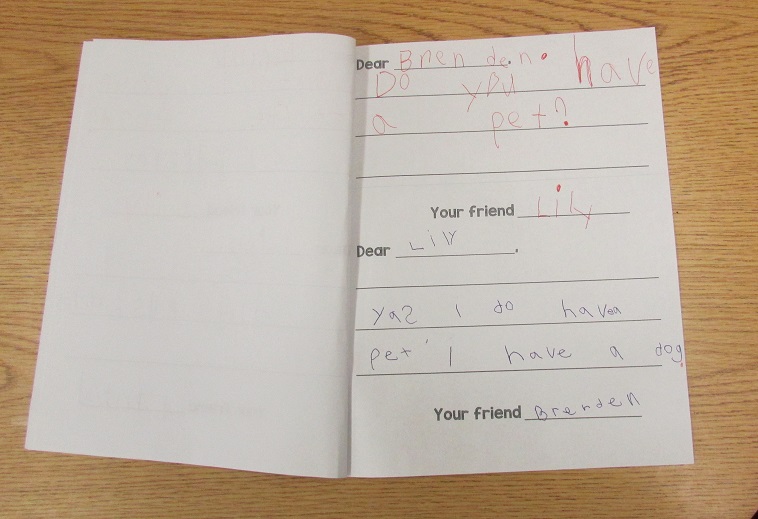 Dear Brenden.
Do you have
a pet?
Your friend Lily
Dear Lily.
yas I do havea
pet' I have a dog.
Your friend Brenden